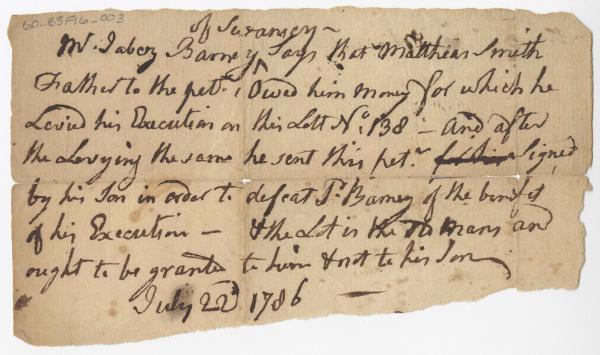 60-63F16-003
of Swanzey
Mr. Jabez Barney Says that Matthias Smith
Father to the petr. Owed him money for which he
Levied his Execution on this Lott No. 138 - And after
the Levying the same he sent this petr. Signed
by his Son in order to defeat Sd. Barney of the benifit
of his Execution - & the Lot is the mans and
ought to be granted to him & not to his Son
July 22d 1786